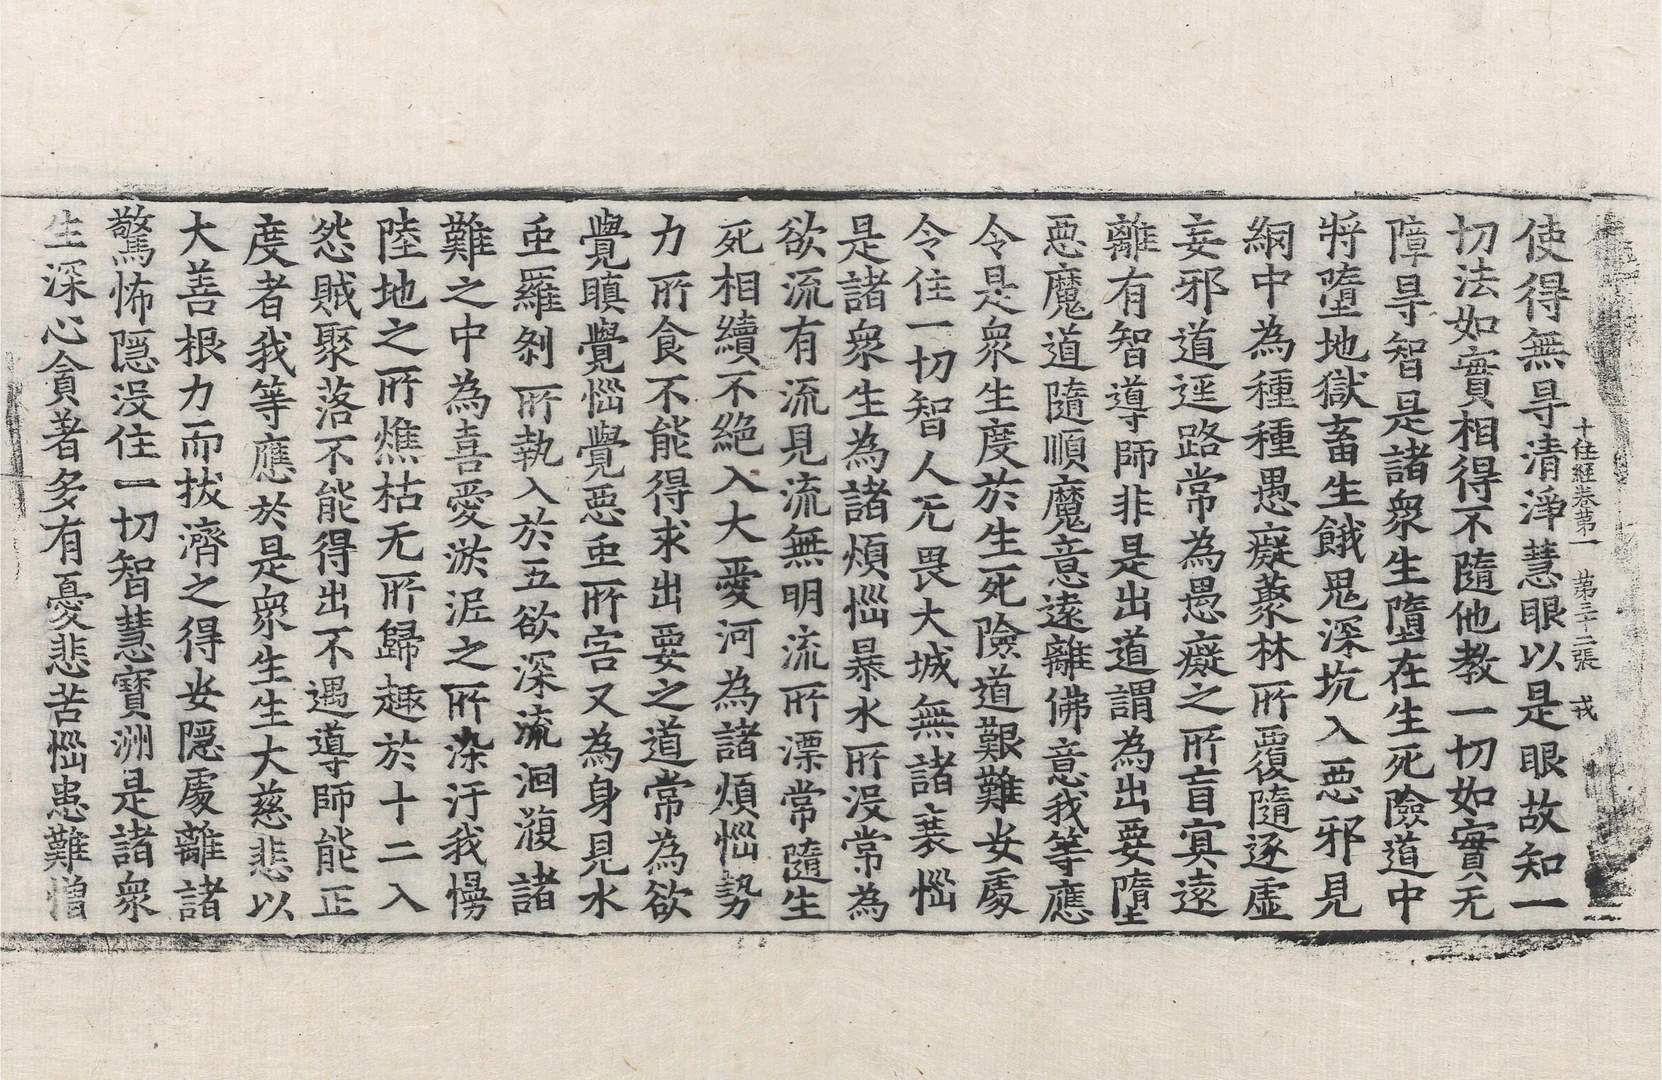 十住經卷第一　第三十二張　戎
使得無㝵清淨慧眼以是眼故知一
切法如實相得不隨他教一切如實无
障㝵智是諸衆生墮在生死險道中
將墮地獄畜生餓鬼深坑入惡邪見
網中為種種愚癡藂林所覆隨逐虛
妄邪道逕路常為愚癡之所盲冥遠
離有智導師非是出道謂為出要墮
惡魔道隨順魔意遠離佛意我等應
令是衆生度於生死險道艱難安處
令住一切智人无畏大城無諸衰惱
是諸衆生為諸煩惱暴水所没常為
欲流有流見流無明流所漂常隨生
死相續不絶入大愛河為諸煩惱勢
力所食不能得求出要之道常為欲
覺瞋覺惱覺惡虫所害又為身見水
虫羅刹所執入於五欲深流洄澓諸
難之中為喜愛淤泥之所染汙我慢
陸地之所燋枯无所歸趣於十二入
怨賊聚落不能得出不遇導師能正
度者我等應於是衆生生大慈悲以
大善根力而拔濟之得安隱處離諸
驚怖隱没住一切智慧寶洲是諸衆
生深心貪著多有憂悲苦惱患難憎